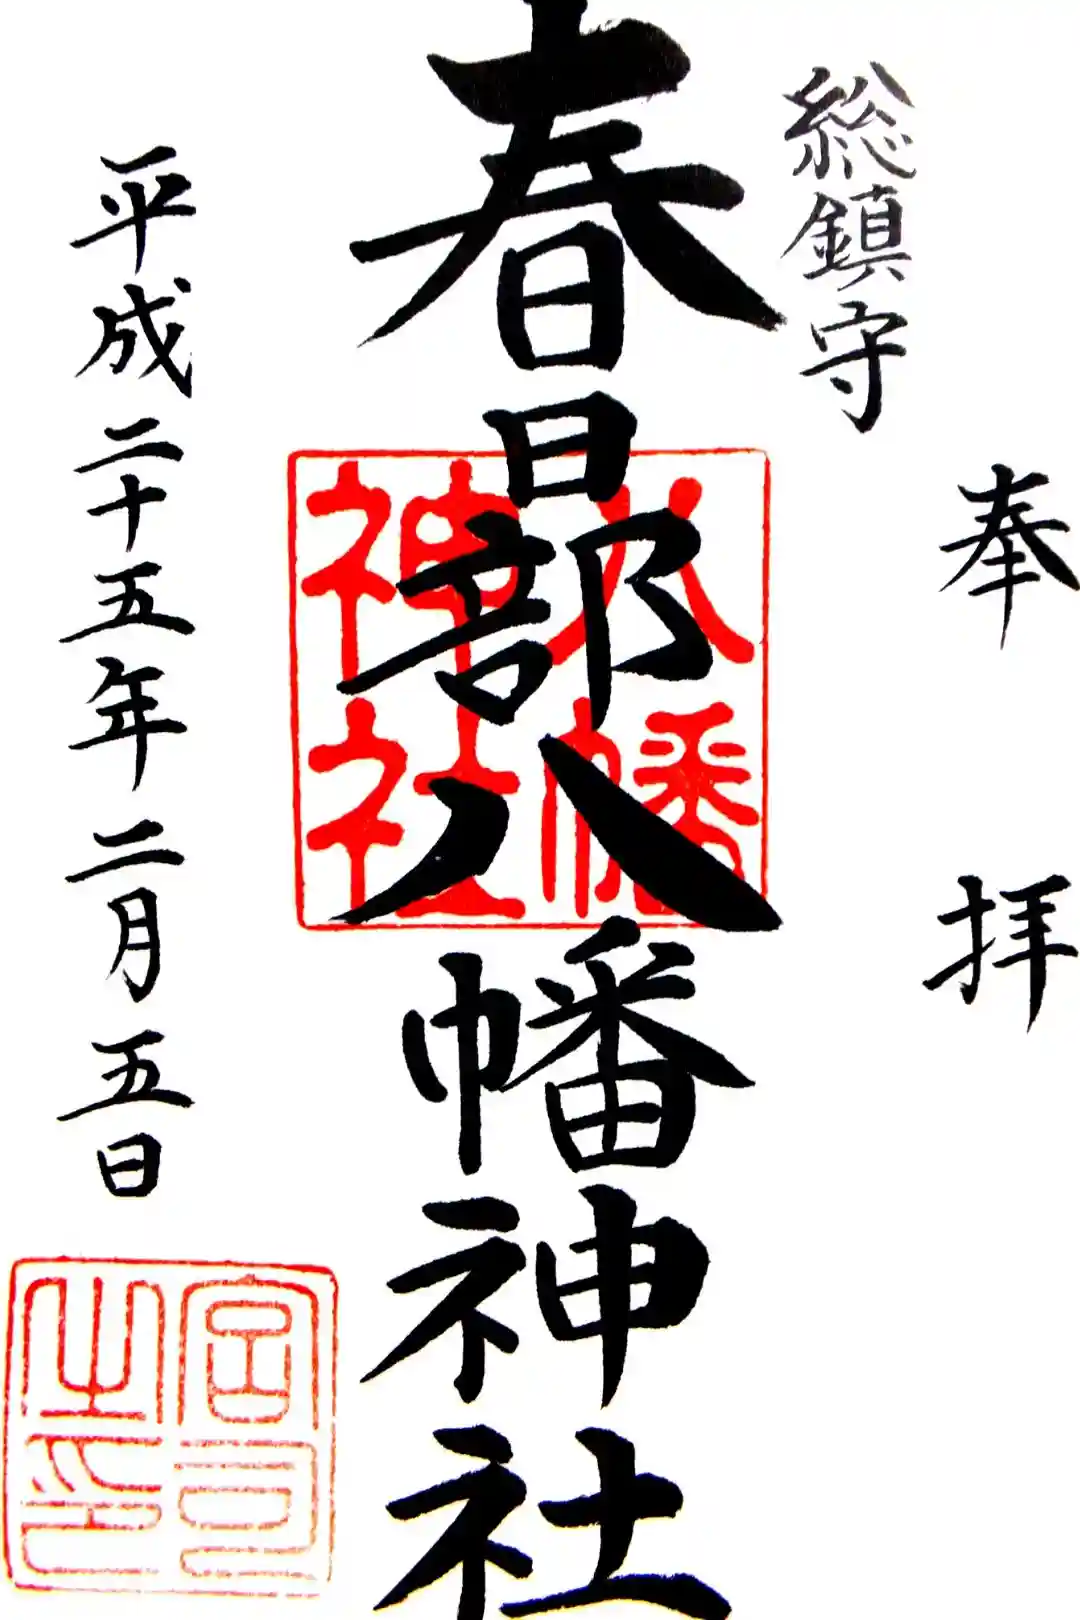 奉拝
総鎮守
春日部八幡神社
八幡神社
平成二十五年二月五日
宮司之印